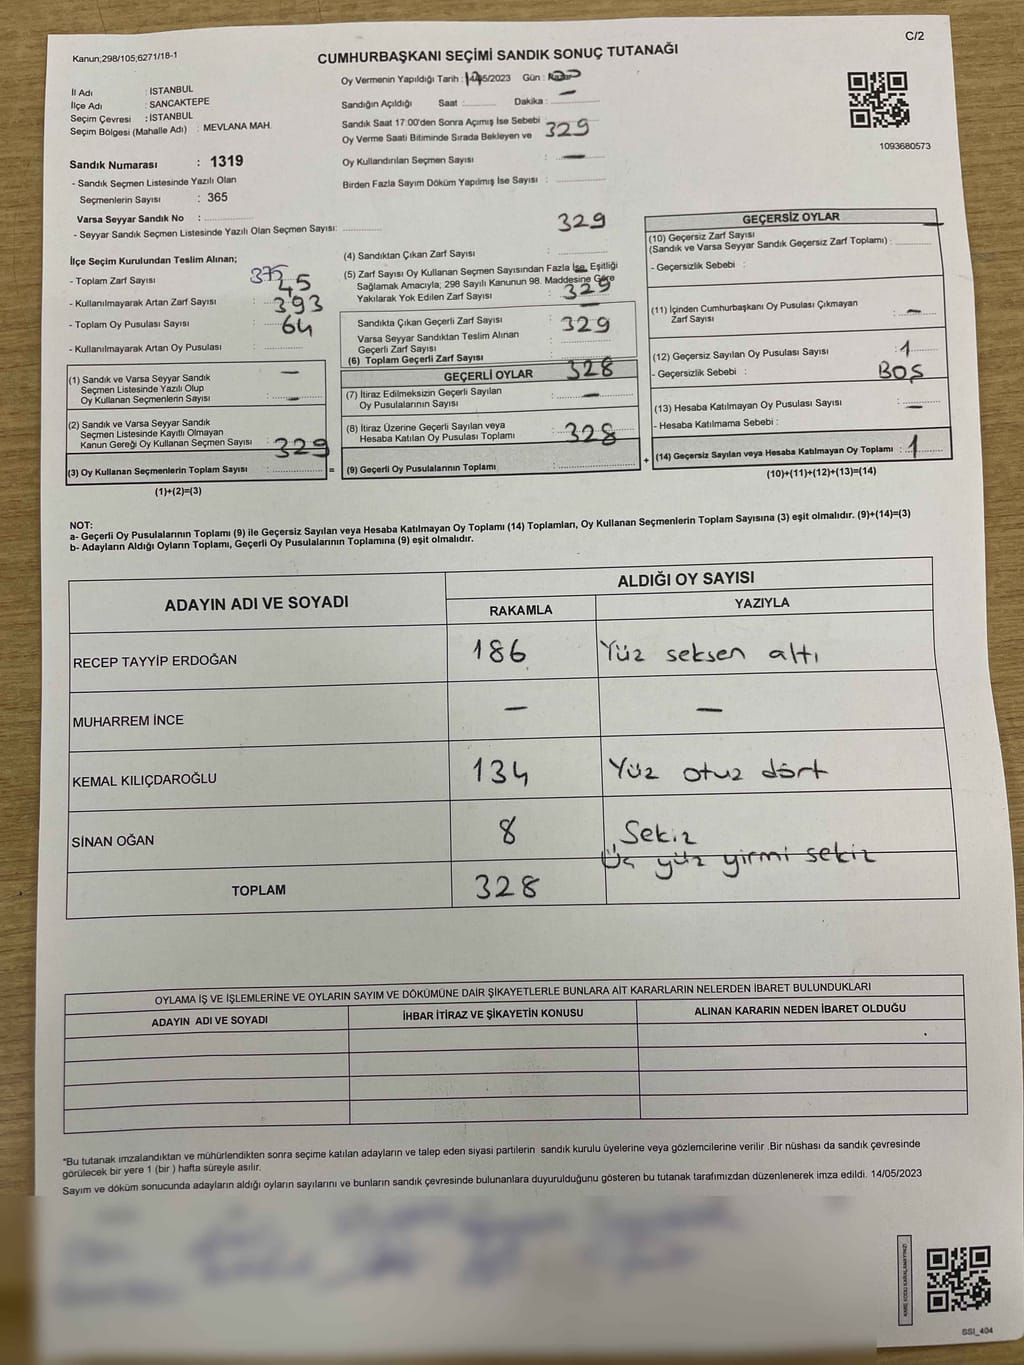 Kanun;298/105;6271/18-1
C/2
CUMHURBAŞKANI SEÇİMİ SANDIK SONUÇ TUTANAĞI
İl Adı : İSTANBUL
İlçe Adı : SANCAKTEPE
Seçim Çevresi : İSTANBUL
Seçim Bölgesi (Mahalle Adı) : MEVLANA MAH.
Sandık Numarası : 1319
- Sandık Seçmen Listesinde Yazılı Olan
Seçmenlerin Sayısı : 365
Varsa Seyyar Sandık No :
- Seyyar Sandık Seçmen Listesinde Yazılı Olan Seçmen Sayısı:
Oy Vermenin Yapıldığı Tarih : 14/05/2023 Gün : Pazar
Sandığın Açıldığı Saat : Dakika :
Sandık Saat 17:00'den Sonra Açımış İse Sebebi :
Oy Verme Saati Bitiminde Sırada Bekleyen ve 329
Oy Kullandırılan Seçmen Sayısı : —
Birden Fazla Sayım Döküm Yapılmış İse Sayısı :
1093680573
İlçe Seçim Kurulundan Teslim Alınan;
- Toplam Zarf Sayısı : 375
45
- Kullanılmayarak Artan Zarf Sayısı : 393
- Toplam Oy Pusulası Sayısı : 64
- Kullanılmayarak Artan Oy Pusulası :
(1) Sandık ve Varsa Seyyar Sandık —
Seçmen Listesinde Yazılı Olup
Oy Kullanan Seçmenlerin Sayısı : —
(2) Sandık ve Varsa Seyyar Sandık
Seçmen Listesinde Kayıtlı Olmayan
Kanun Gereği Oy Kullanan Seçmen Sayısı : 329
(3) Oy Kullanan Seçmenlerin Toplam Sayısı : =
(1)+(2)=(3)
329
(4) Sandıktan Çıkan Zarf Sayısı :
(5) Zarf Sayısı Oy Kullanan Seçmen Sayısından Fazla İse, Eşitliği
Sağlamak Amacıyla; 298 Sayılı Kanunun 98. Maddesine Göre
Yakılarak Yok Edilen Zarf Sayısı : 329
Sandıkta Çıkan Geçerli Zarf Sayısı : 329
Varsa Seyyar Sandıktan Teslim Alınan
Geçerli Zarf Sayısı :
(6) Toplam Geçerli Zarf Sayısı :
GEÇERLİ OYLAR 328
(7) İtiraz Edilmeksizin Geçerli Sayılan
Oy Pusulalarının Sayısı : —
(8) İtiraz Üzerine Geçerli Sayılan veya
Hesaba Katılan Oy Pusulası Toplamı : 328
(9) Geçerli Oy Pusulalarının Toplamı : +
GEÇERSİZ OYLAR
(10) Geçersiz Zarf Sayısı
(Sandık ve Varsa Seyyar Sandık Geçersiz Zarf Toplamı) :
- Geçersizlik Sebebi :
(11) İçinden Cumhurbaşkanı Oy Pusulası Çıkmayan
Zarf Sayısı : —
(12) Geçersiz Sayılan Oy Pusulası Sayısı : 1
- Geçersizlik Sebebi : BOŞ
(13) Hesaba Katılmayan Oy Pusulası Sayısı : —
- Hesaba Katılmama Sebebi :
(14) Geçersiz Sayılan veya Hesaba Katılmayan Oy Toplamı : 1
(10)+(11)+(12)+(13)=(14)
NOT:
a- Geçerli Oy Pusulalarının Toplamı (9) ile Geçersiz Sayılan veya Hesaba Katılmayan Oy Toplamı (14) Toplamları, Oy Kullanan Seçmenlerin Toplam Sayısına (3) eşit olmalıdır. (9)+(14)=(3)
b- Adayların Aldığı Oyların Toplamı, Geçerli Oy Pusulalarının Toplamına (9) eşit olmalıdır.
ADAYIN ADI VE SOYADI
ALDIĞI OY SAYISI
RAKAMLA YAZIYLA
RECEP TAYYİP ERDOĞAN 186 Yüz seksen altı
MUHARREM İNCE — —
KEMAL KILIÇDAROĞLU 134 Yüz otuz dört
SİNAN OĞAN 8 Sekiz
TOPLAM 328 Üç yüz yirmi sekiz
OYLAMA İŞ VE İŞLEMLERİNE VE OYLARIN SAYIM VE DÖKÜMÜNE DAİR ŞİKAYETLERLE BUNLARA AİT KARARLARIN NELERDEN İBARET BULUNDUKLARI
ADAYIN ADI VE SOYADI İHBAR İTİRAZ VE ŞİKAYETİN KONUSU ALINAN KARARIN NEDEN İBARET OLDUĞU
*Bu tutanak imzalandıktan ve mühürlendikten sonra seçime katılan adayların ve talep eden siyasi partilerin sandık kurulu üyelerine veya gözlemcilerine verilir .Bir nüshası da sandık çevresinde
görülecek bir yere 1 (bir ) hafta süreyle asılır.
Sayım ve döküm sonucunda adayların aldığı oyların sayılarını ve bunların sandık çevresinde bulunanlara duyurulduğunu gösteren bu tutanak tarafımızdan düzenlenerek imza edildi. 14/05/2023
SSI_404